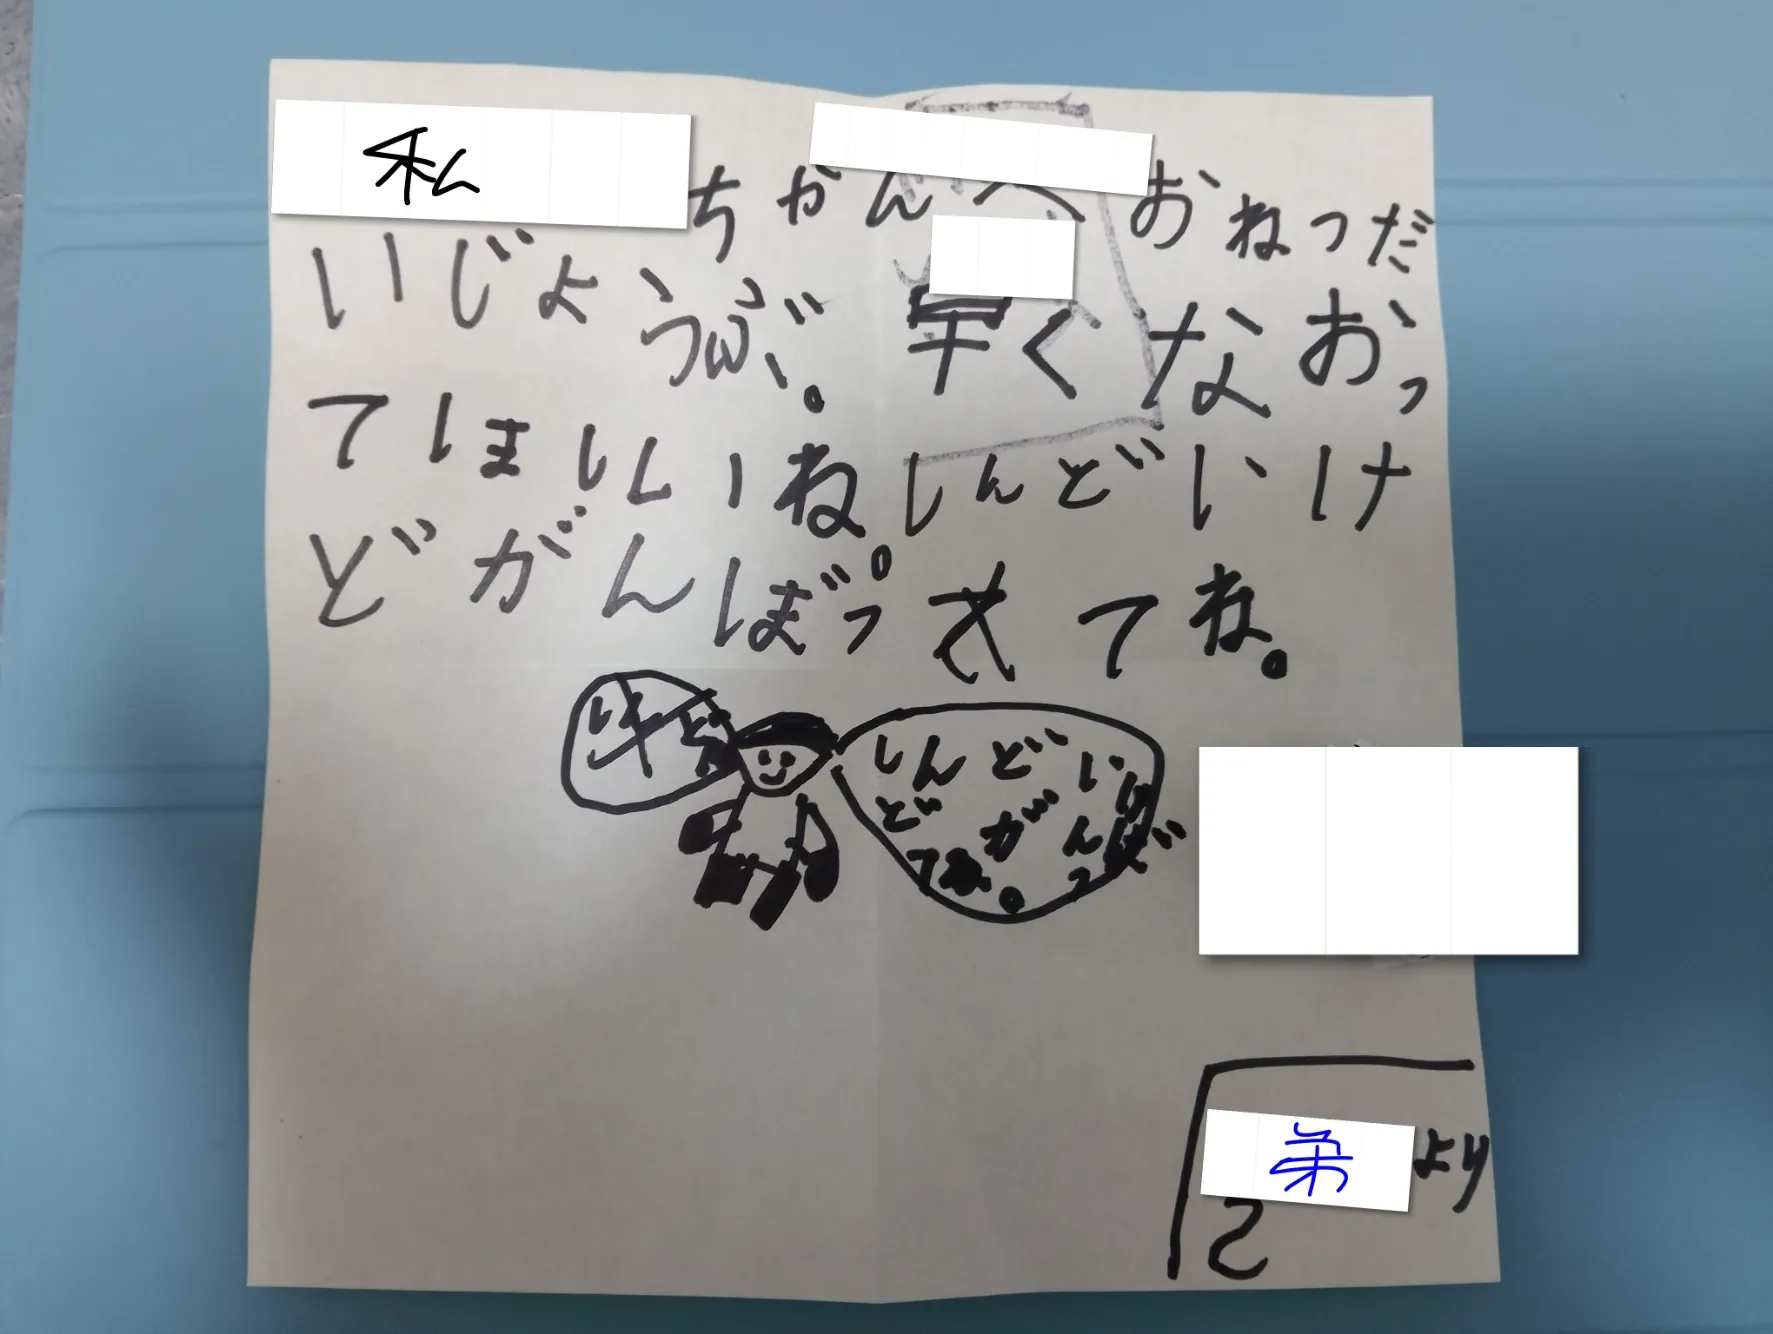 私ちゃんへ おねつだ
いじょうぶ。早くなおっ
てほしいね。しんどいけ
どがんばってね。
しんどいけ
どがんば
ってね。
弟より